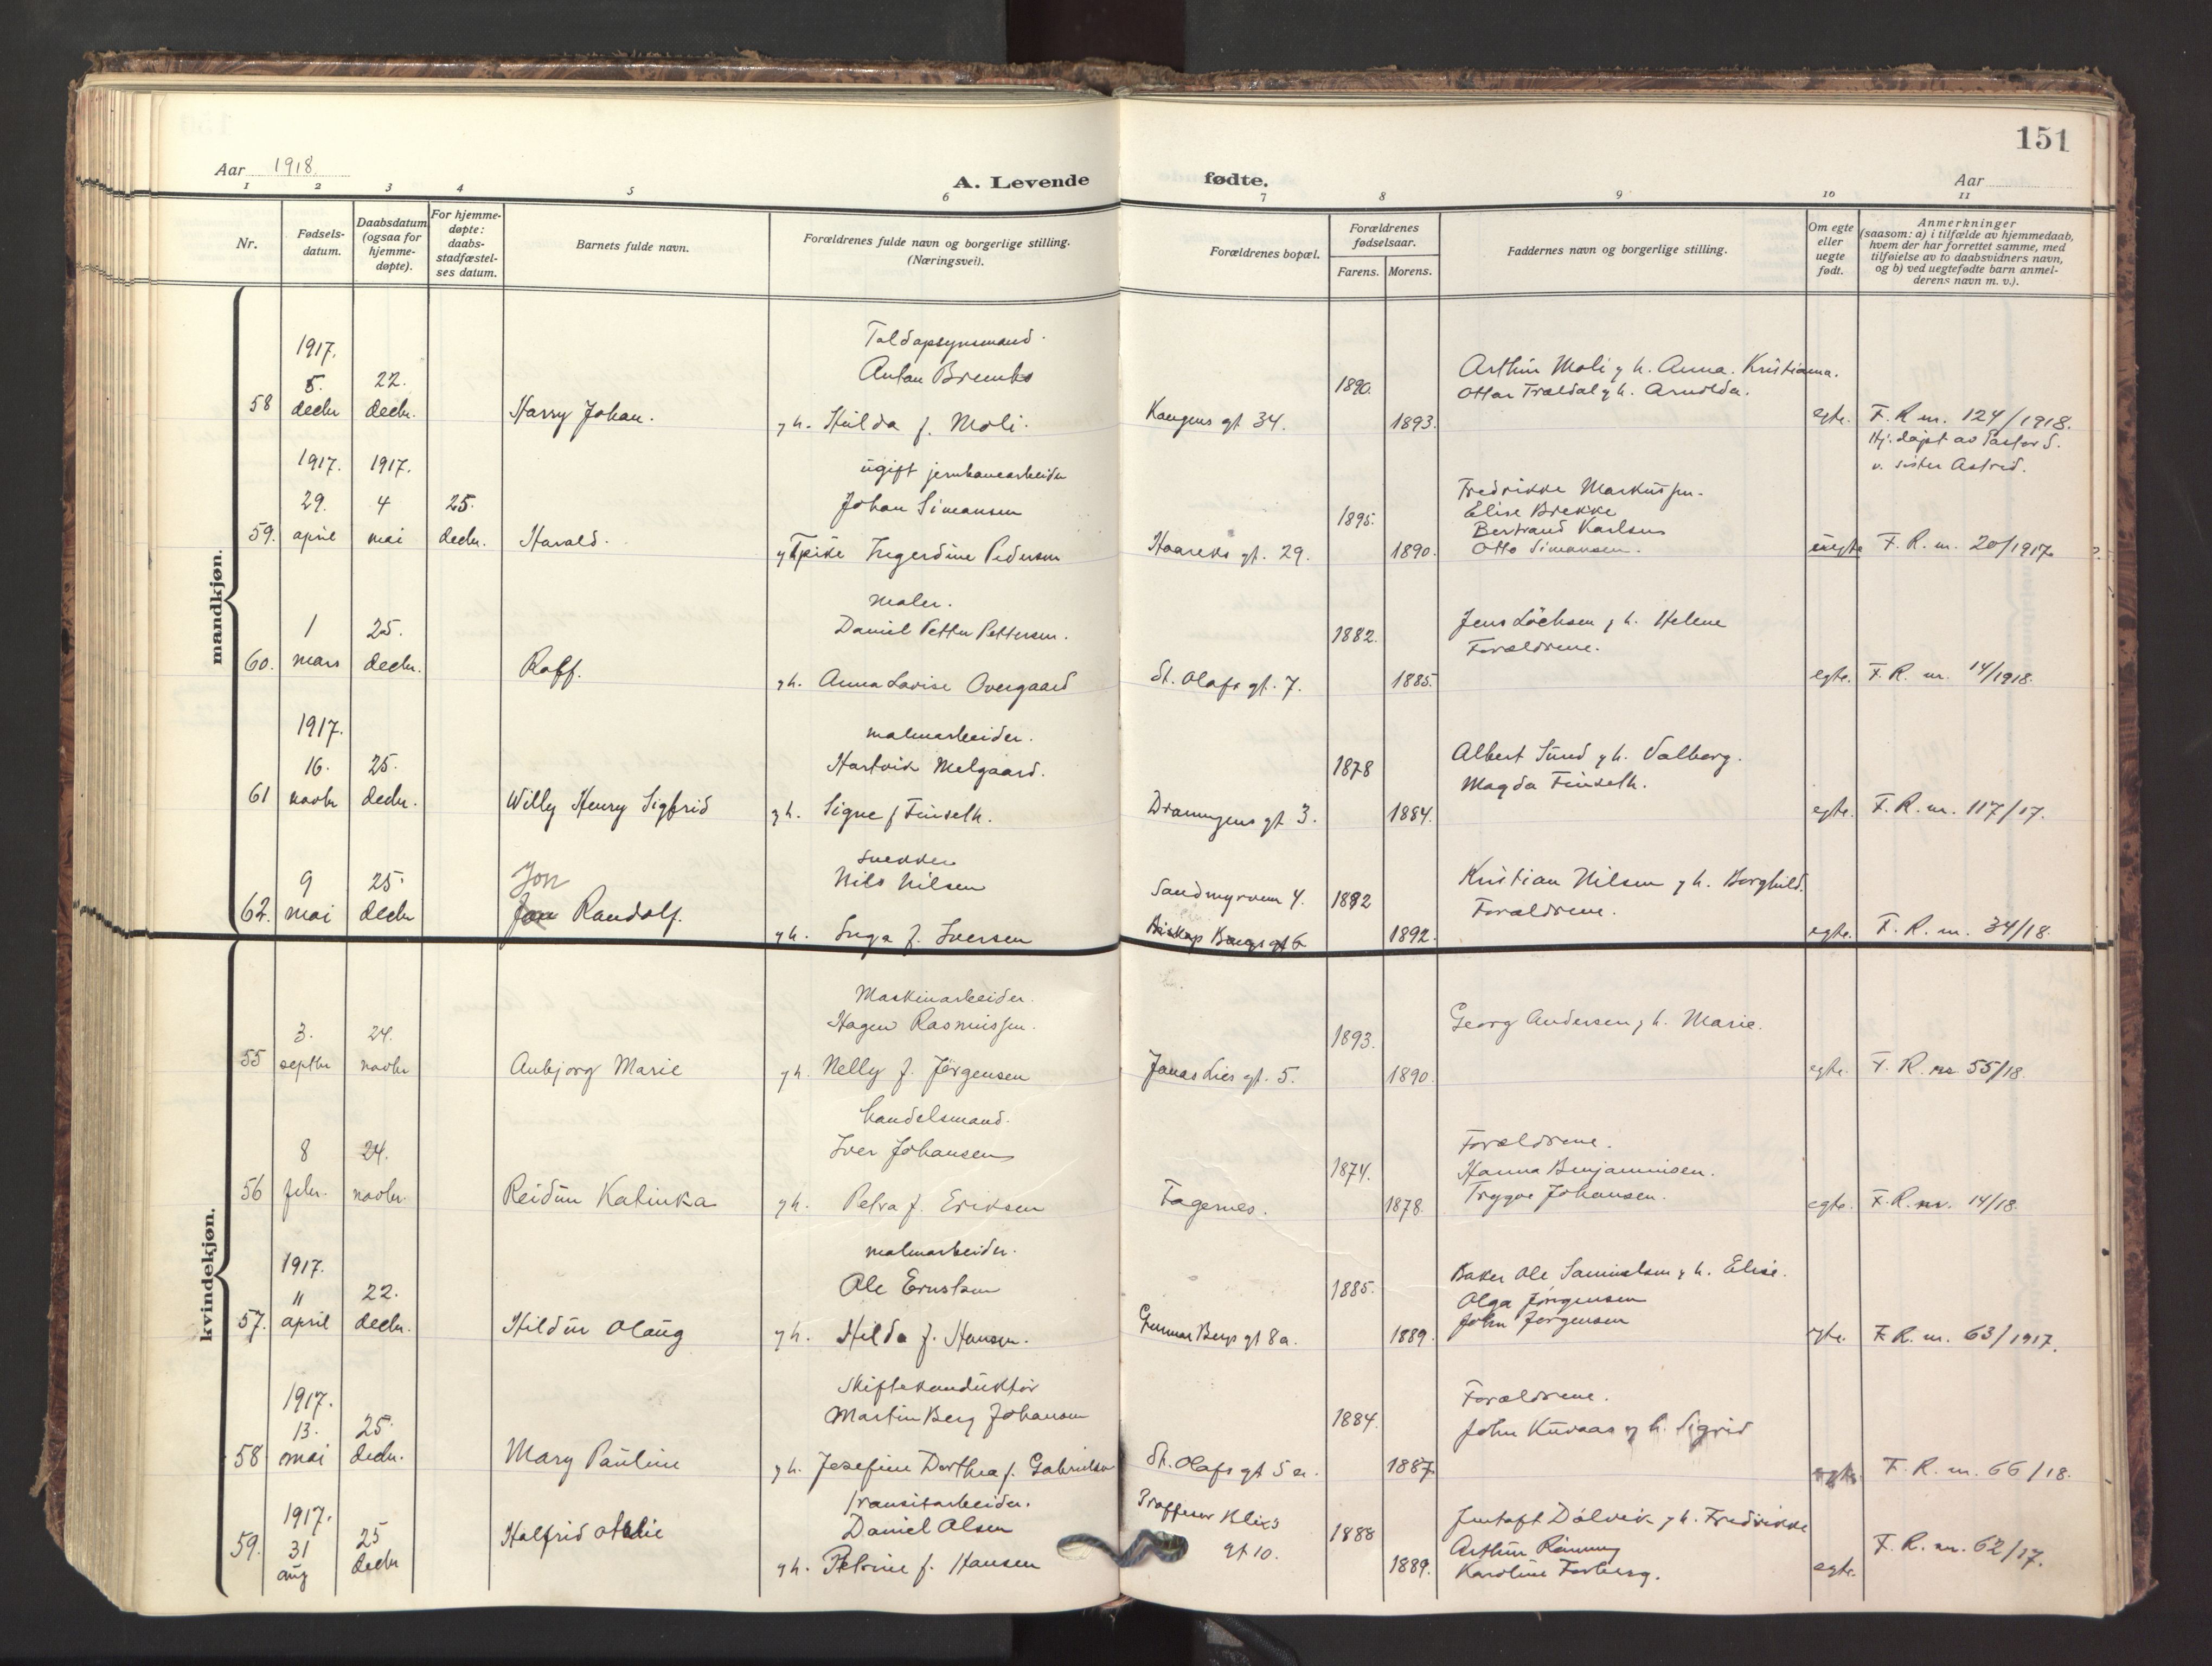 151
Aar 1918.
A. Levende fødte.
Aar
1 2 3 4 5 6 7 8 9 10 11
Nr.
Fødsels-
datum.
Daabsdatum
(ogsaa for
hjemme-
døpte).
For hjemme-
døpte:
daabs-
stadfæstel-
ses datum.
Barnets fulde navn.
Forældrenes fulde navn og borgerlige stilling.
(Næringsvei).
Forældrenes bopæl.
Forældrenes
fødselsaar.
Farens. Morens.
Faddernes navn og borgerlige stilling.
Om egte
eller
uegte
født.
Anmerkninger
(saasom: a) i tilfælde av hjemmedaab,
hvem der har forrettet samme, med
tilføielse av to daabsvidners navn,
og b) ved uegtefødte barn anmel-
derens navn m. v.).
mandkjøn.
58
1917.
5.
decbr
22.
decbr.
Harry Johan.
Toldopsynsmand.
Anton
g h. Hilda f. Moli.
Kongens gt 34.
1890.
1893.
Arthur Moli g h. Anna. Kristianna.
Ottar Fraldal g h. Arnolda.
egte.
F. R nr. 124/1918.
59.
1917.
29.
april
1917.
4
mai
25.
decbr.
Harald.
ugift jernbanearbeider
Johan Simonsen
g pike Ingerdine Pedersen
Haareks gt. 29.
1895.
1890.
Fredrikke Markussen.
Elise Brekke
Bertrand Karlsen
Otto Simonsen.
uegte
Hj. døpt av Pastor S.
v. søster Astrid.
F. R. nr. 20/1917.
60.
1
mars
25.
decbr.
Rolf.
maler.
Daniel Petter Pettersen.
g h. Anna Lovise Overgaard
St. Olafs gt. 7.
1882.
1885.
Jens Löchsen g h. Helene
Forældrene.
egte.
F. R. nr. 14/1918.
61
1917.
16.
novbr
25.
decbr.
Willy Henry Sigfrid
malmarbeider.
Hartvik Melgaard.
g h. Signe f Finseth.
Dronningens gt 3.
1878
1884.
Albert Sund g h. Valborg.
Magda Finseth.
egte.
F. R. nr. 117/17.
62.
9
mai
25.
decbr
Jon
Jon Randolf.
snekker
Nils Nilsen
g h. Inga f. Iversen
Sandmyrveien 4.
Biskop Bangs gt 6
1892
1892.
Kristian Nilsen g h. Borghild.
Forældrene.
egte.
F. R. nr. 34/18.
kvindekjøn.
55
3.
septbr
24.
novbr
Aubjorg Marie
Maskinarbeider.
Hagen Rasmussen.
g h. Nelly f. Jørgensen
Jonas Lies gt. 5.
1893.
1890.
Georg Andersen g h. Marie.
egte.
F. R. nr 55/18.
56
8
febr.
24.
novbr.
Reidun Katinka
handelsmand.
Iver Johansen
g h. Petra f. Eriksen
Fagernes.
1874.
1878.
Forældrene.
Hanna Benjaminsen.
Trygve Johansen.
egte.
F. R. nr. 14/18.
57.
1917.
11
april
22.
decbr.
Hildur Olaug
malmarbeider.
Ole Ernstsen
g h. Hilda f. Hansen.
Gunnar Bergs gt 8a.
1885.
1889.
Baker Ole Samuelsen g h. Elise.
Olga Jørgensen
John Jørgensen
egte.
F. R. nr. 63/1917.
58
1917.
13.
mai
25.
decbr.
Mary Pauline
Skiftekonduktør
Martin Berg Johansen
g h. Josefine Dorthea f. Gabrielsen
St. Olafs gt 5 a.
1884.
1887.
Forældrene.
John Kuvaas g h. Sigrid
egte.
F. R. nr. 66/18.
59.
1917.
31
aug
25
decbr
Halfrid Otelie
transitarbeider.
Daniel Olsen
g h. Petrine f. Hansen
Proffesor Klix's
gt 10.
1888
1889.
Justoft Dolvik g h. Fredrikke
Arthur Rønning
Karoline Forberg.
egte.
F. R. nr. 62/17.